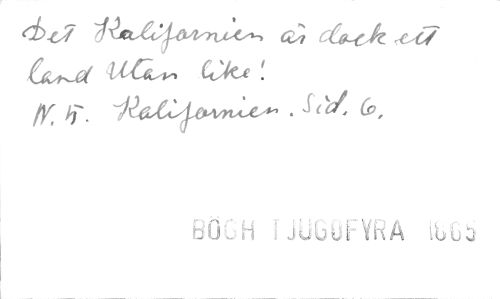 Det Kalifornien är dock ett
land utan like!
N. 5. Kalifornien. Sid. 6.
BÖGH TJUGOFYRA 1865